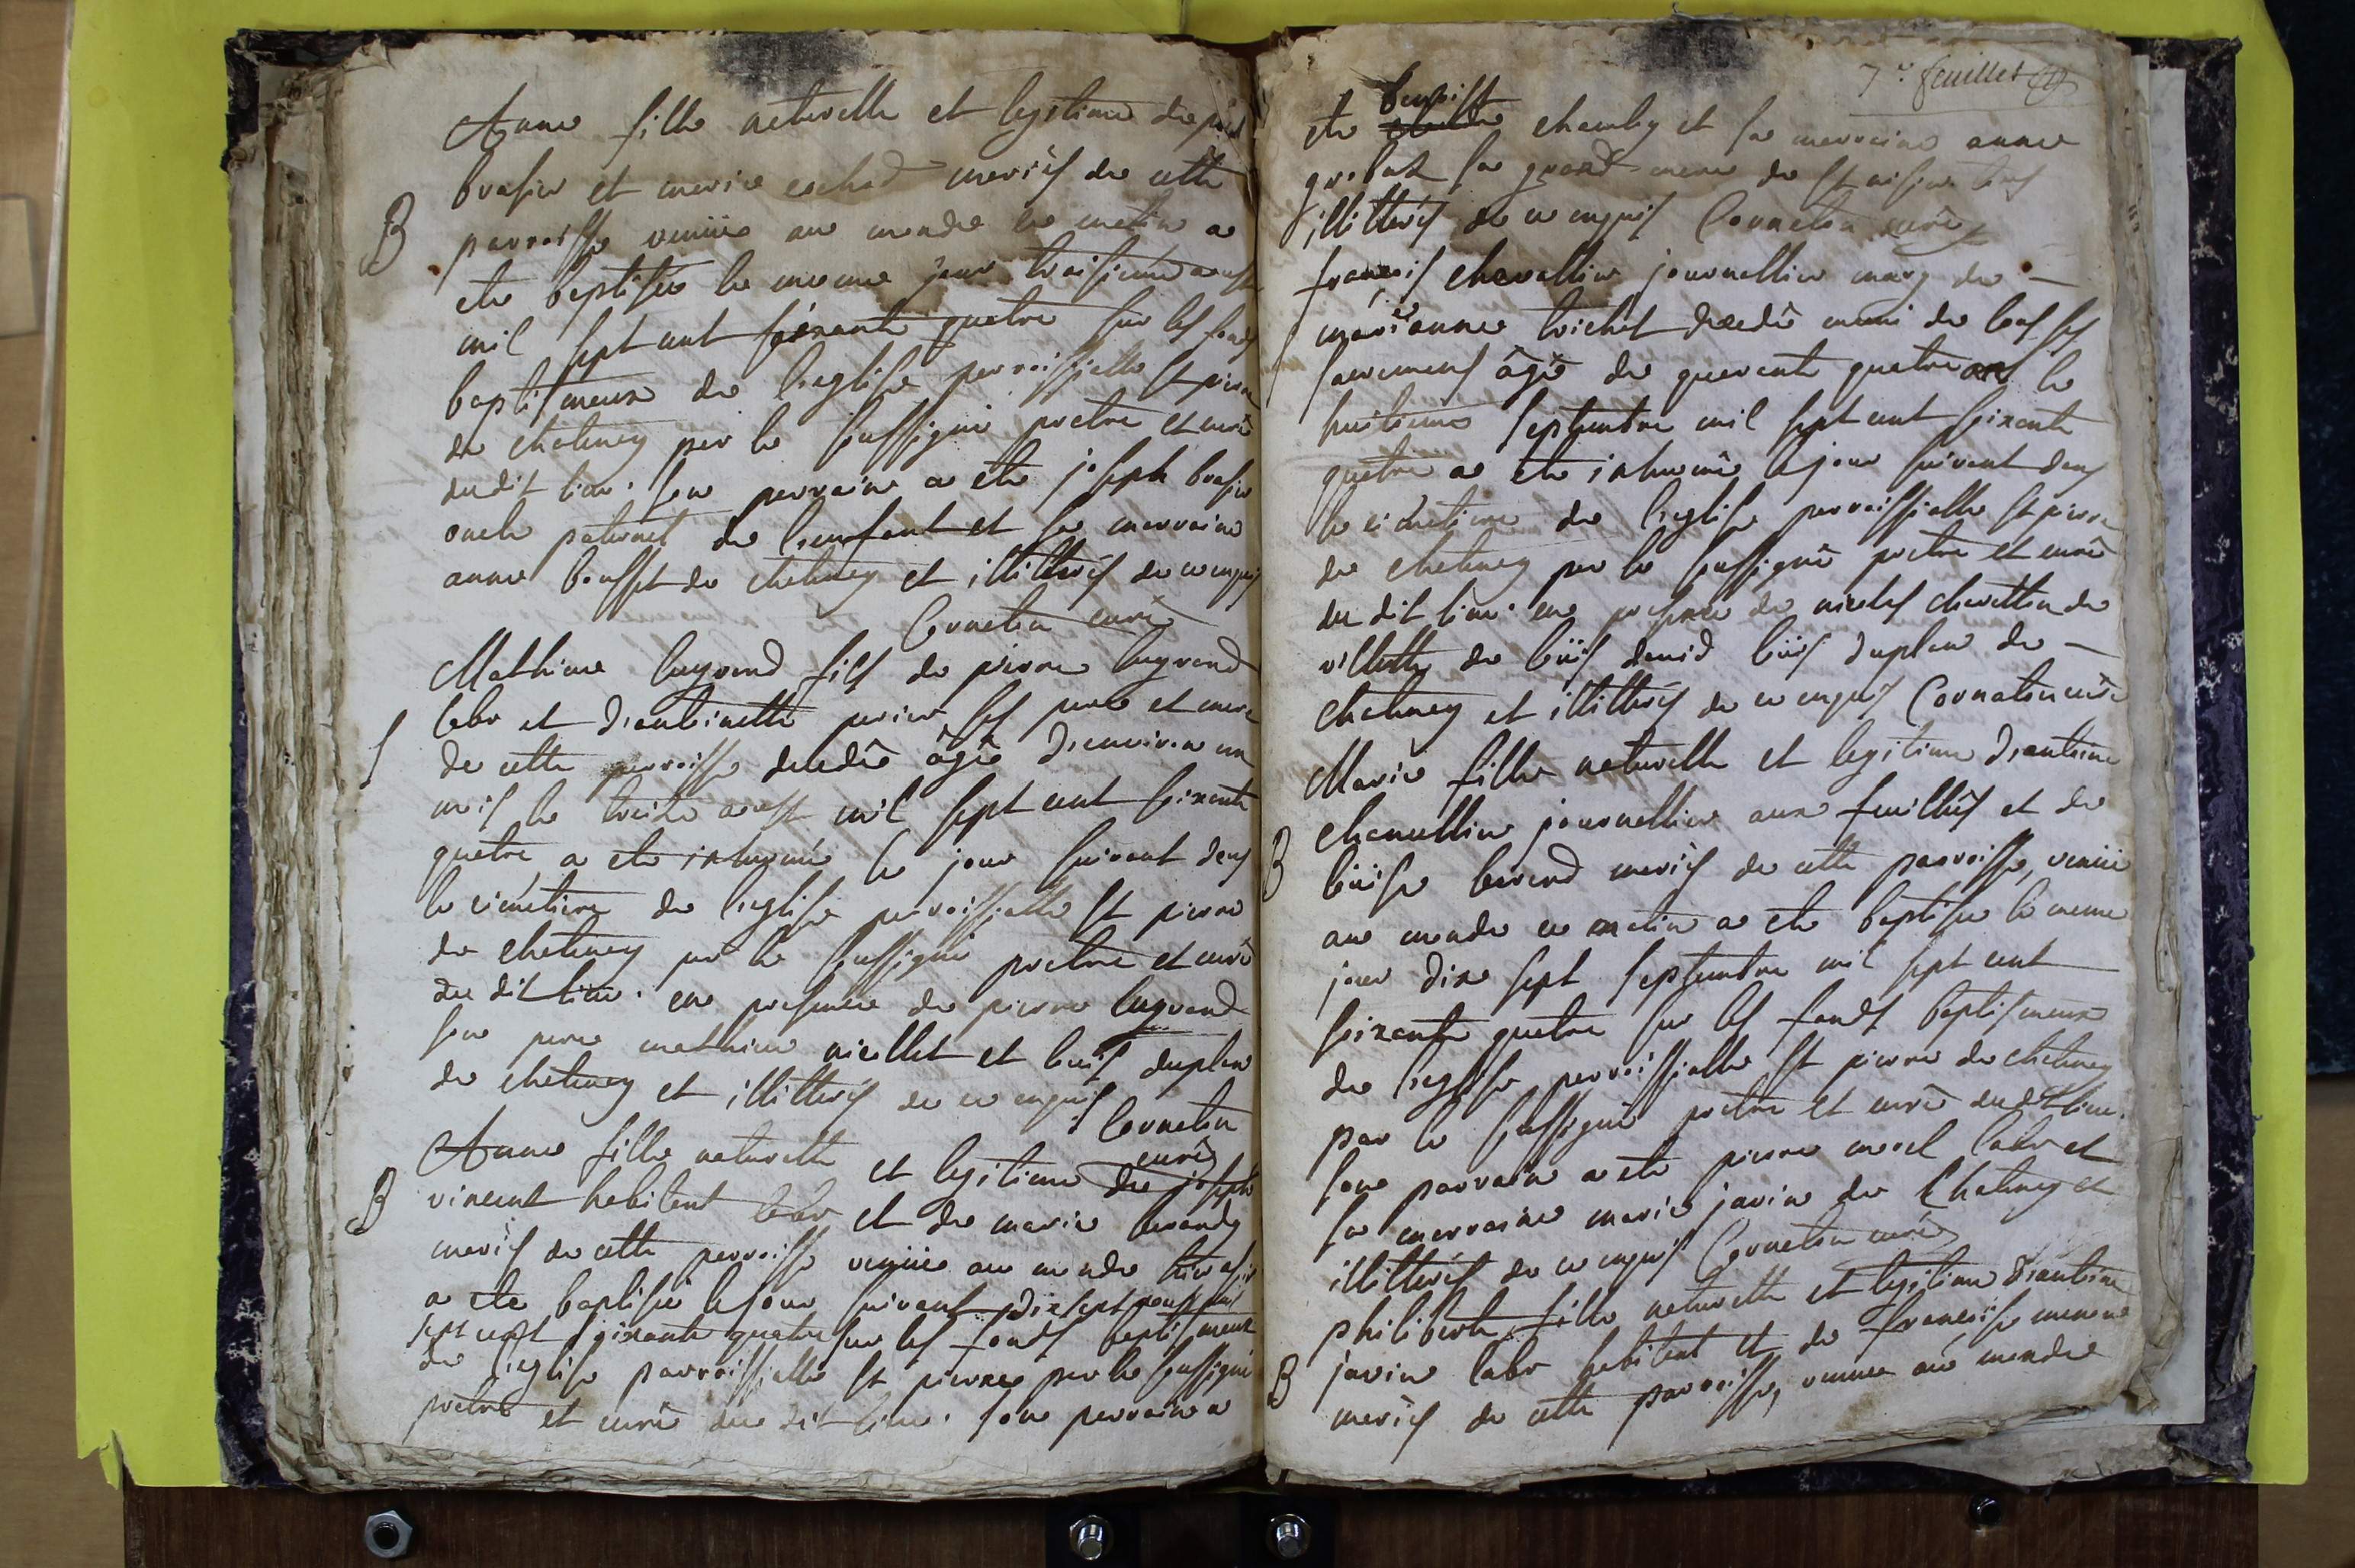 Anne fille naturelle et legitime de
brasier et marie mariés de cette
B
parroisse venüe au monde ce matin a
ete baptisée le meme jour troisieme aoust
mil sept cent soixante quatre sur les fonds
baptismeaux de l'eglise parroissialle st pierre
de chatenay par le soussigné pretre et curé
du dit lieu. son parrain a ete joseph brasier
oncle paternel de l'enfant et sa marraine
anne bousset de chatenay et illitterés de ce enquis
Cornaton curé
Mathieu lugrand fils de pierre lugrand
labr et d'antoinette perier ses pere et mere
de cette parroisse decedé âgé d'environ un
mois le treize aoust mil sept cent soixante
quatre a ete inhumé le jour suivant dans
le cimetiere de l'eglise parroissialle st pierre
de chatenay par le soussigné pretre et curé
du dit lieu. en presence de pierre lugrand
son pere mathieu niellet et louis duplan
de chatenay et illitterés de ce enquis
Cornaton
curé
Anne fille naturelle et legitime de joseph
B
vincent habitant labr et de marie
mariés de cette parroisse venüe au monde hier
a ete baptisée le jour suivant dix sept aoust mil
sept cent soixante quatre sur les fonds baptismeaux
de l'eglise parroissialle st pierre par le soussigné
pretre et curé du dit lieu. son parrain a
7e feuillet
ete benoist et sa marraine anne
sa grand mere de
illitterés de ce enquis Cornaton curé
francois chevallier journallier mary de
marie anne trichet decedé muni de tous ses
sacremens âgé de quarante quatre ans le
huitieme septembre mil sept cent soixante
quatre a ete inhumé le jour suivant dans
le cimetiere de l'eglise parroissialle st pierre
de chatenay par le soussigné pretre et curé
du dit lieu. en presence de nicolas chevallier de
villette de loüis david loüis duplan de
chatenay et illitterés de ce enquis Cornaton curé
Marie fille naturelle et legitime d'antoine
chanellier journallier aux feuillées et de
B
loüise mariés de cette parroisse, venüe
au monde ce matin a ete baptisée le meme
jour dix sept septembre mil sept cent
soixante quatre sur les fonds baptismeaux
de l'eglise parroissialle st pierre de chatenay
par le soussigné pretre et curé du dit lieu.
son parrain a ete pierre morel labr et
sa marraine marie javin de Chatenay et
illitterés de ce enquis Cornaton curé
philiberte fille naturelle et legitime d'antoine
B
javin labr habitant et de francoise
mariés de cette parroisse, venue au monde